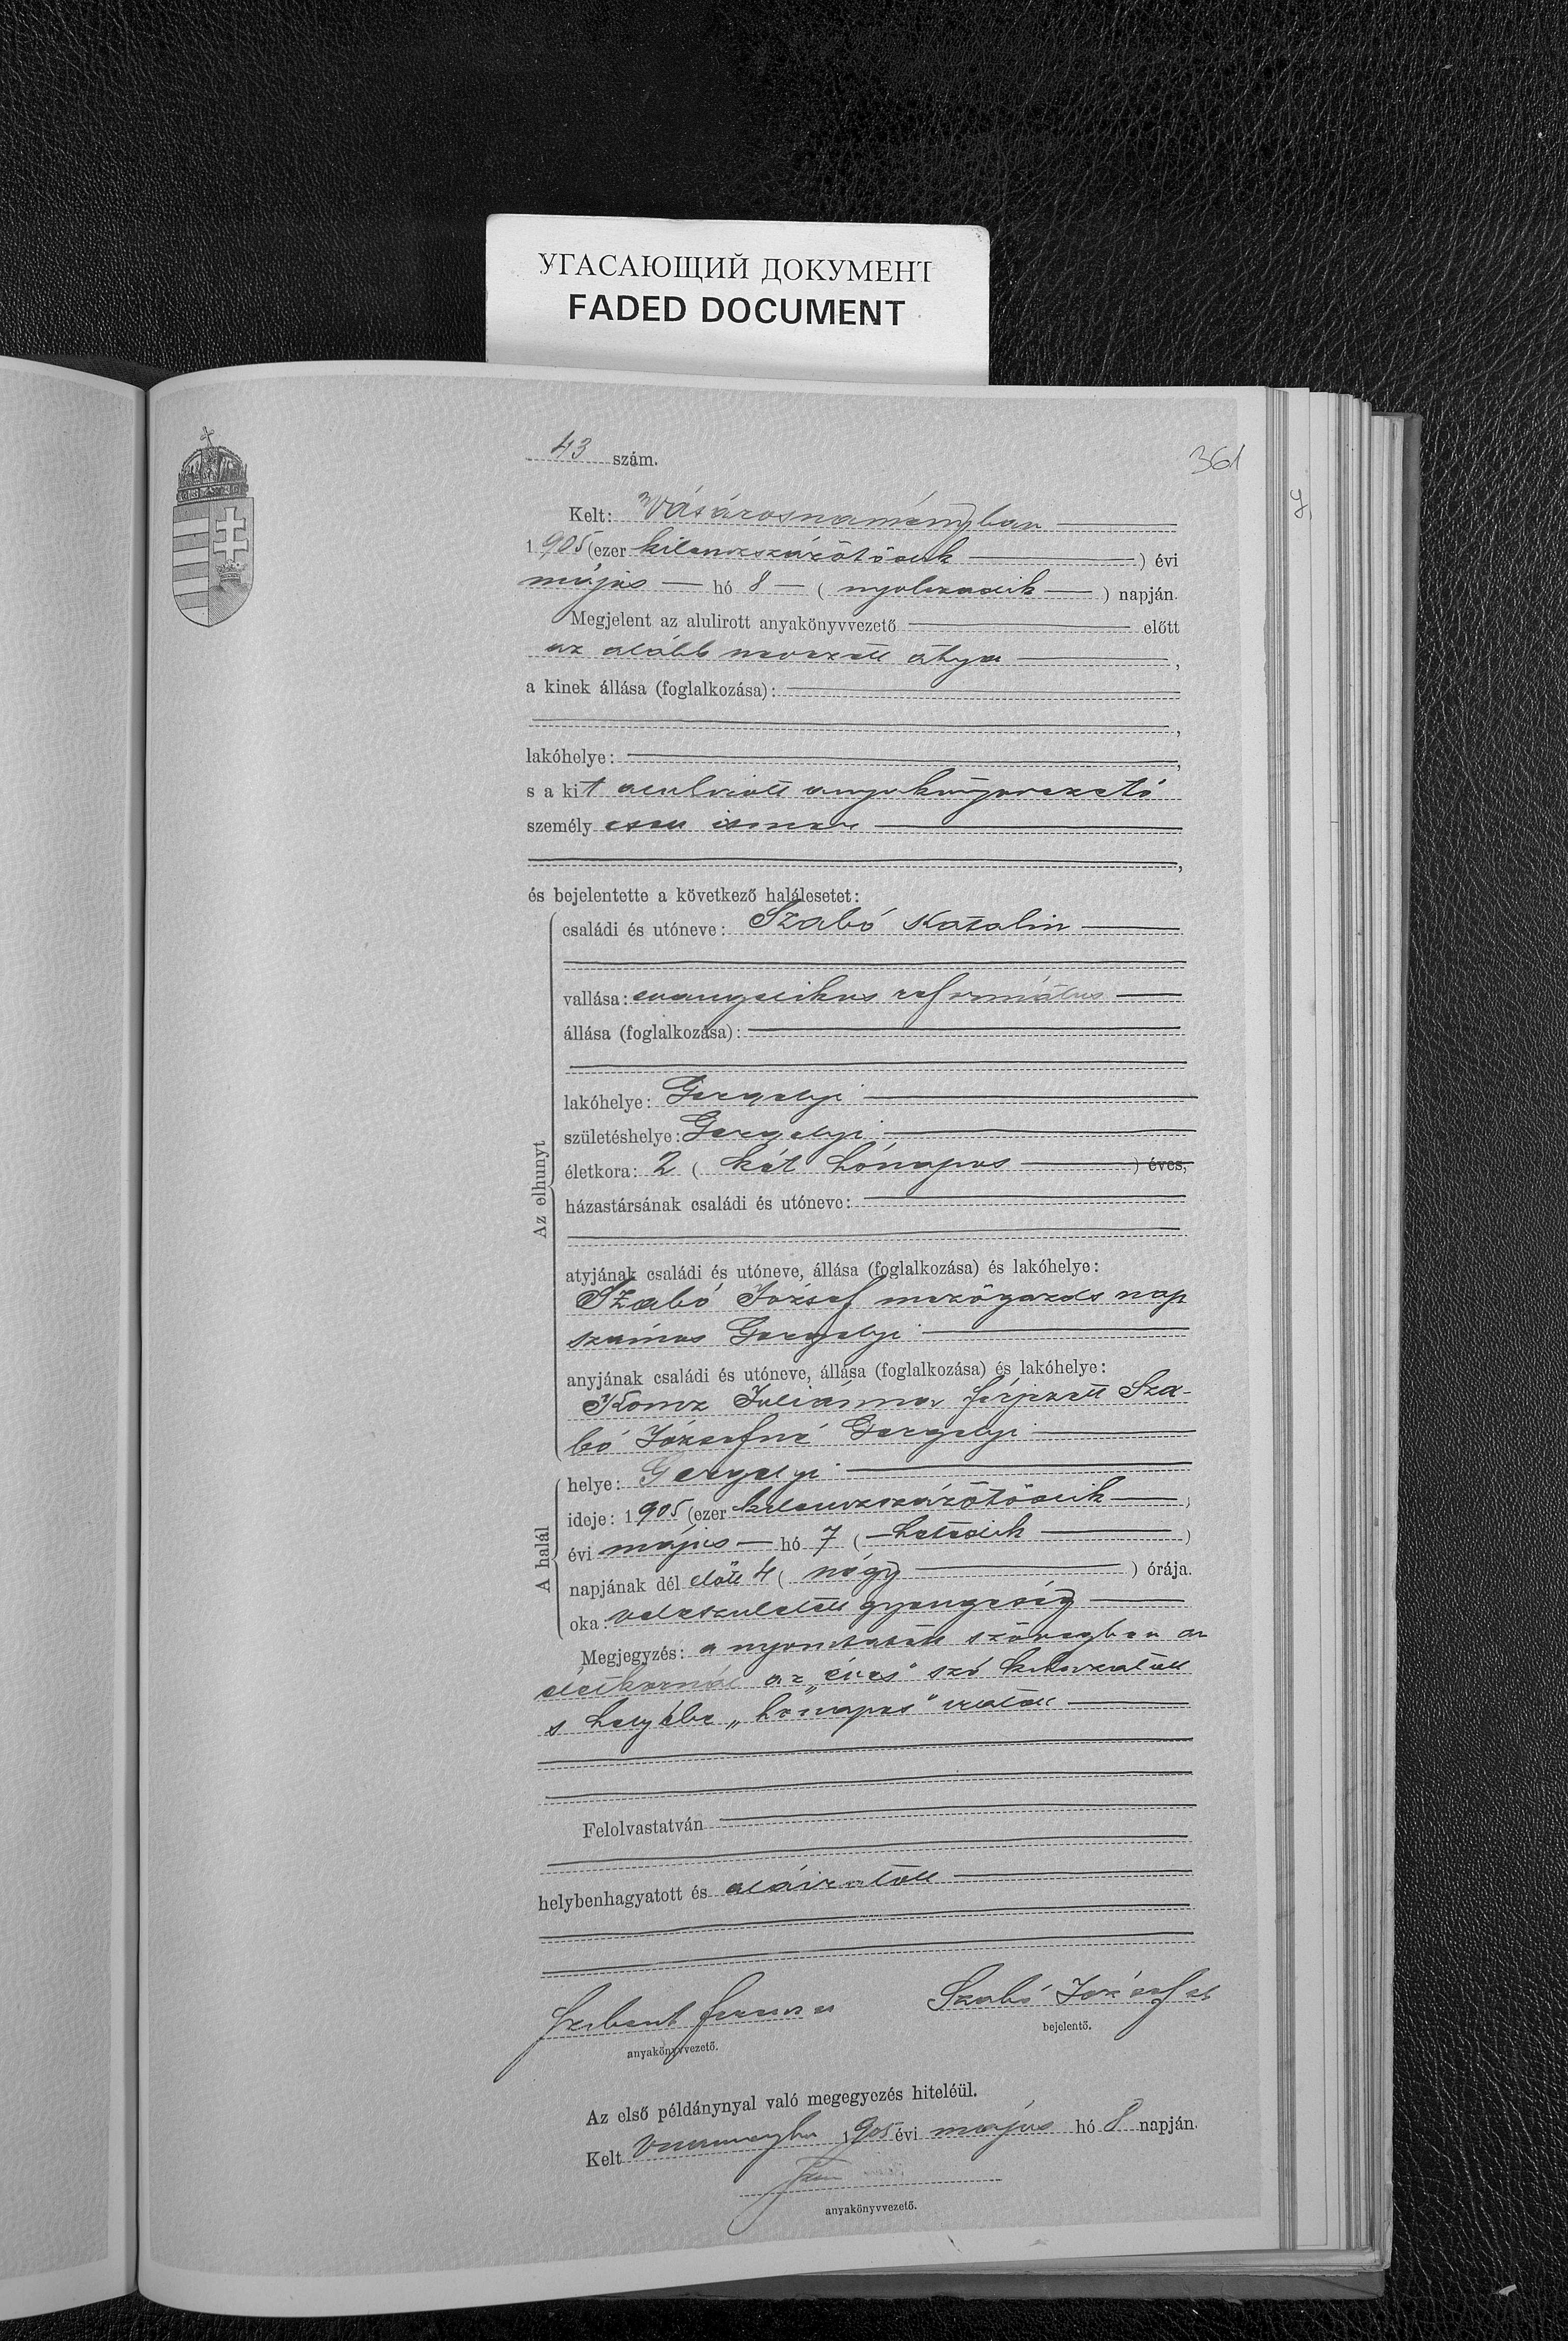 УГАСАЮЩИЙ ДОКУМЕНТ
FADED DOCUMENT
43 szám.
361
Kelt: Vásárosnaményban
1905 (ezer kilenczszázötödik) évi
május hó 8 (nyolczadik) napján.
Megjelent az alulirott anyakönyvvezető előtt
az alább nevezett atya,
a kinek állása (foglalkozása):
lakóhelye:
s a kit alulirott anyakönyvvezető
személyesen ismer
és bejelentette a következő halálesetet:
Az elhunyt
családi és utóneve: Szabó Katalin
vallása: evangelikus református
állása (foglalkozása):
lakóhelye: Gergelyi
születéshelye: Gergelyi
életkora: 2 (két hónapos) éves,
házastársának családi és utóneve:
atyjának családi és utóneve, állása (foglalkozása) és lakóhelye:
Szabó József mezőgazds nap
számos Gergelyi
anyjának családi és utóneve, állása (foglalkozása) és lakóhelye:
Koncz Juliánna férjezett Sza-
bó Józsefné Gergelyi
A halál
helye: Gergelyi
ideje: 1905 (ezer kilenczszázötödik)
évi május hó 7 (hetedik)
napjának dél előtt 4 (négy) órája.
oka: veleszületett gyengeség
Megjegyzés: a nyomtatott szövegben az
életkornál az „éves" szó kihuzatott
s helyébe „hónapos" iratott
Felolvastatván
helybenhagyatott és aláiratott
Ferencz
anyakönyvvezető.
Szabó József
bejelentő.
Az első példánynyal való megegyezés hiteléül.
Kelt 1905 évi május hó 8 napján.
anyakönyvvezető.